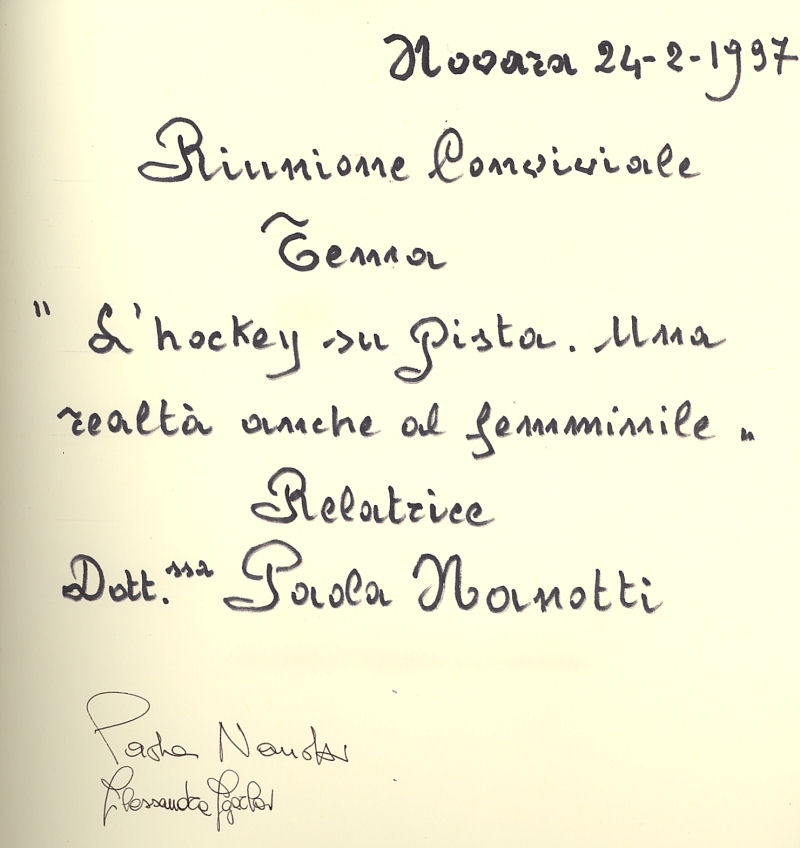 Novara 24-2-1997
Riunione Conviviale
Tema
" L'hockey su pista. Una
realtà anche al femminile "
Relatrice
Dott.ssa Paola Nanotti
Paola Nanotti
Alessandra